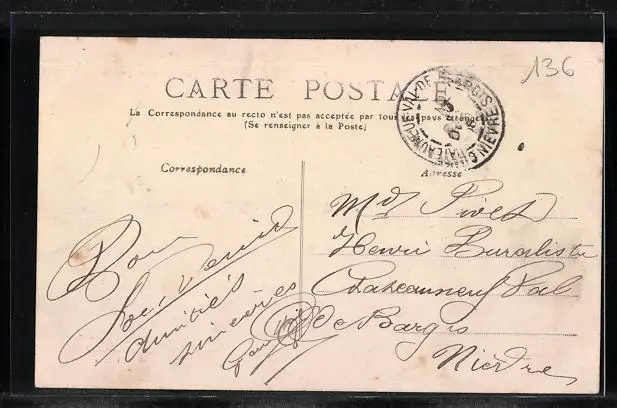 136
CARTE POSTALE
La Correspondance au recto n'est pas acceptée par tous les pays étrangers
(Se renseigner à la Poste)
CHATEAUNEUF-VAL-DE-BARGIS NIEVRE
Correspondance
Bon
Souvenir
amitiés
sincères
Adresse
Md
Henri Buraliste
Chateauneuf Val
De Bargis
Nièvre